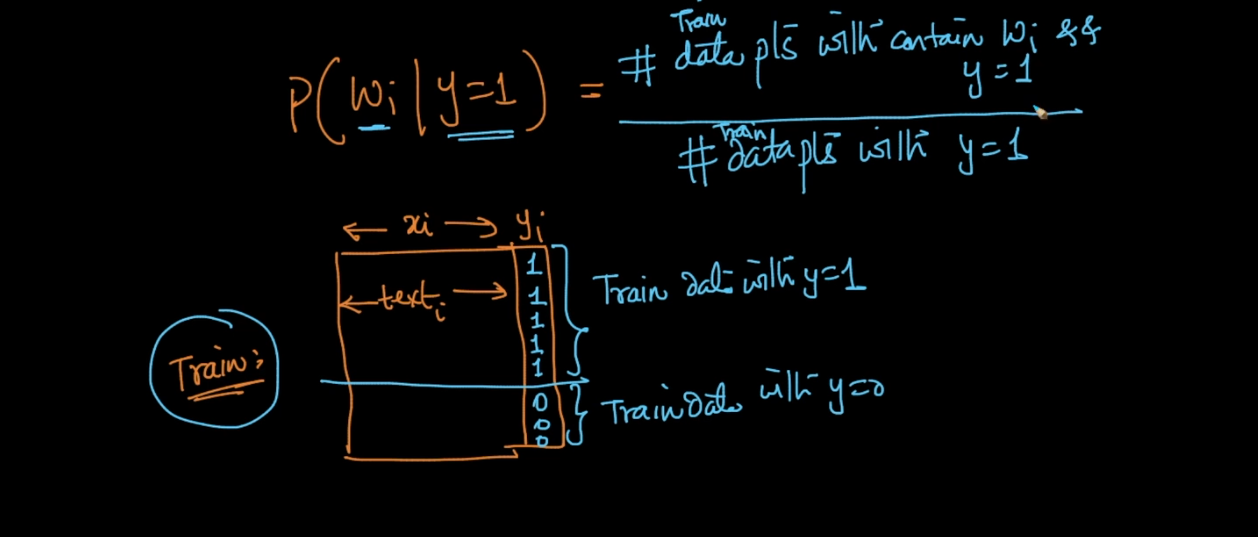 P(wi | y=1) = # Train data pts with contain wi && y=1
# Train data pts with y=1
← xi → yi
1
← texti → 1
1
1
1
Train data with y=1
Train:
0
0
0
Train Data with y=0